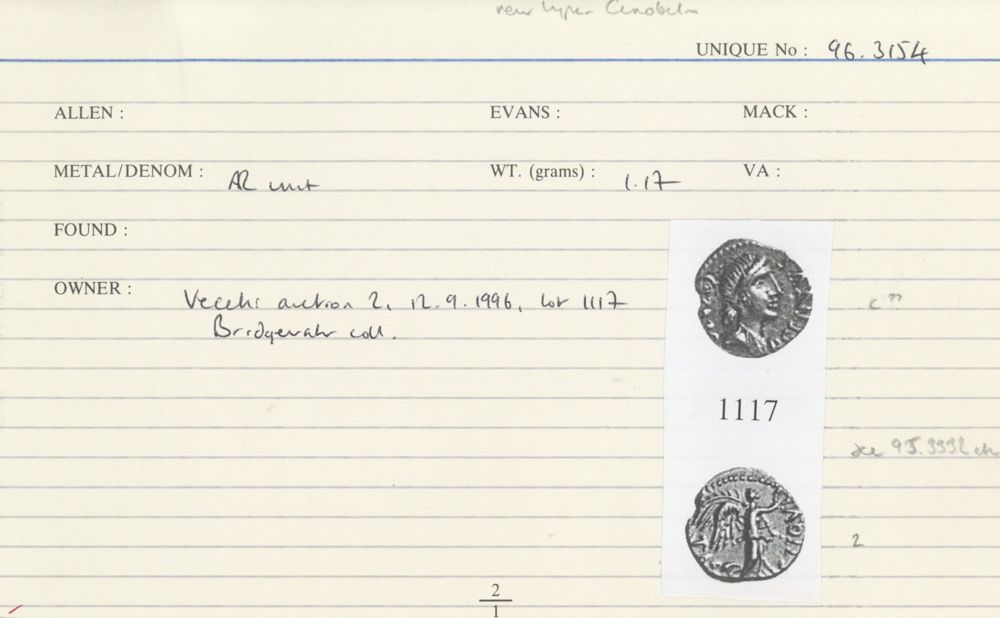 new type Cunobelin
UNIQUE No : 96.3154
ALLEN : EVANS : MACK :
METAL/DENOM : AR unit WT. (grams) : 1.17 VA :
FOUND :
OWNER : Vecchi auction 2, 12.9.1996, lot 1117
Bridgewater coll.
1117
see 95.3332 etc
2
2
1